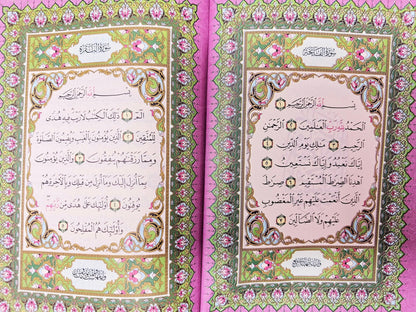 سورة الفاتحة
بسم الله الرحمن الرحيم ١
الحمد لله رب العلمين ٢ الرحمن
الرحيم ٣ ملك يوم الدين ٤
إياك نعبد وإياك نستعين ٥
اهدنا الصرط المستقيم ٦ صرط
الذين أنعمت عليهم غير المغضوب
عليهم ولا الضالين ٧
سورة البقرة
بسم الله الرحمن الرحيم
الم ١ ذلك الكتب لا ريب فيه هدى
للمتقين ٢ الذين يؤمنون بالغيب ويقيمون الصلوة
ومما رزقنهم ينفقون ٣ والذين يؤمنون
بما أنزل إليك وما أنزل من قبلك وبالآخرة هم
يوقنون ٤ أولئك على هدى من ربهم
وأولئك هم المفلحون ٥